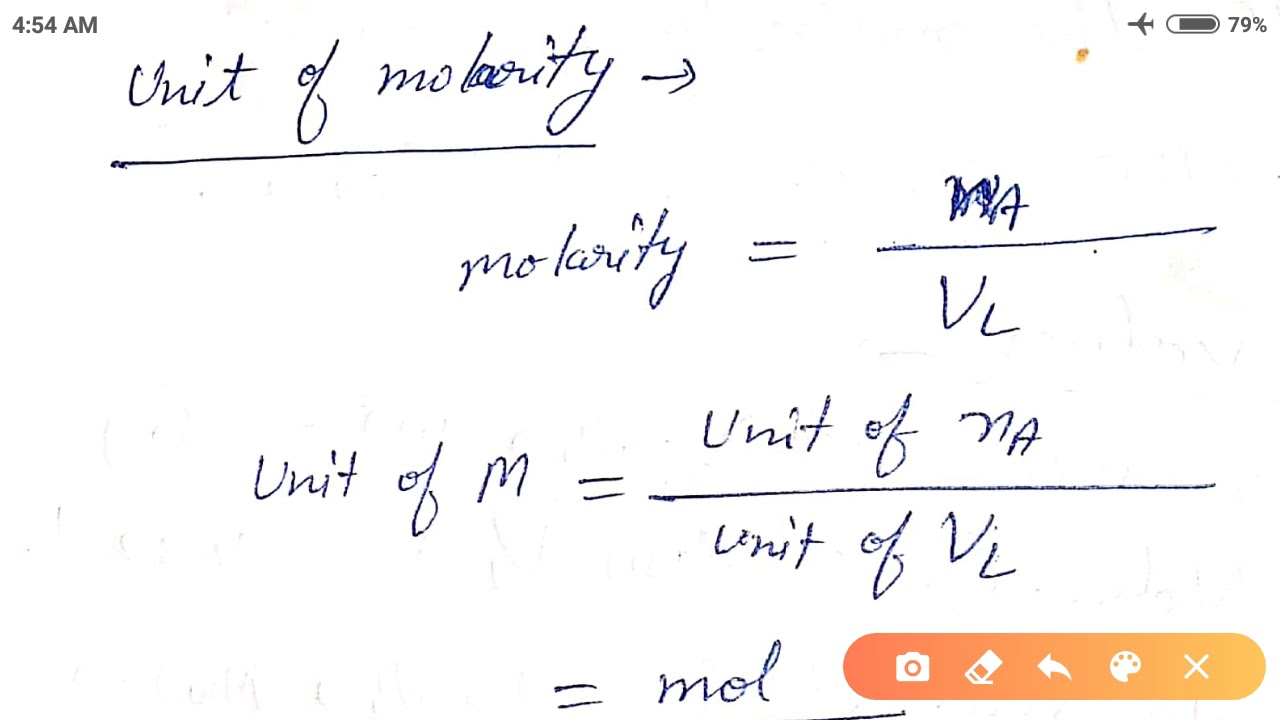 4:54 AM
79%
Unit of molarity →
molarity = nA / VL
Unit of M = Unit of nA / Unit of VL
= mol